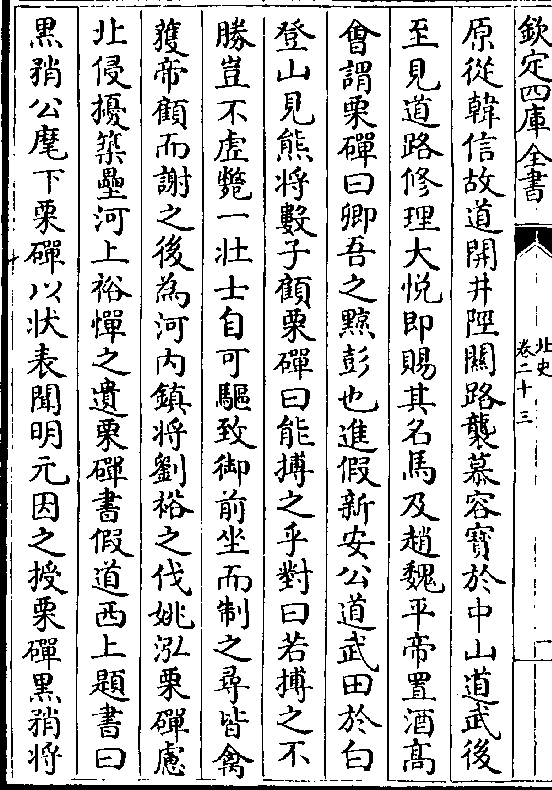 欽定四庫全書
北史
卷二十三
原從韓信故道開井陘關路襲慕容寶於中山道武後
至見道路修理大悅即賜其名馬及趙魏平帝置酒高
會謂栗磾曰卿吾之黥彭也進假新安公道武田於白
登山見熊將數子顧栗磾曰能搏之乎對曰若搏之不
勝豈不虛斃一壯士自可驅致御前坐而制之尋皆禽
獲帝顧而謝之後為河內鎮將劉裕之伐姚泓栗磾慮
北侵擾築壘河上裕憚之遺栗磾書假道西上題書曰
黑矟公麾下栗磾以狀表聞明元因之授栗磾黑矟將